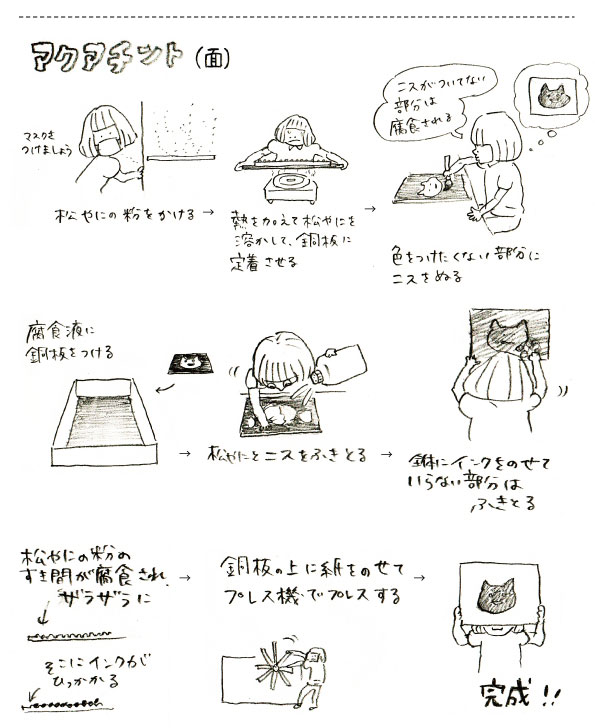 アクアチント(面)
マスクを
つけましょう
松やにの粉をかける→
熱を加えて松やにを
溶かして、銅板に
定着させる
→
ニスがついてない
部分は
腐食される
色をつけたくない部分に
ニスをぬる
腐食液に
銅板をつける
→
松やにとニスをふきとる
→
全体にインクをのせて
いらない部分は
ふきとる
松やにの粉の
すき間が腐食され
ザラザラに
そこにインクが
ひっかかる
→
銅板の上に紙をのせて
プレス機でプレスする
→
完成!!